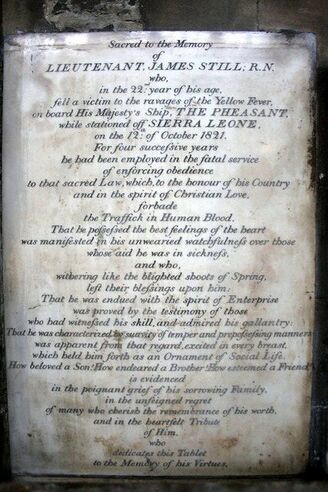 Sacred to the Memory
of
LIEUTENANT, JAMES STILL; R.N.
who,
in the 22.nd year of his age,
fell a victim to the ravages of the Yellow Fever,
on board His Majesty's Ship, THE PHEASANT,
while stationed off SIERRA LEONE,
on the 12.th of October 1821.
For four succeſsive years
he had been employed in the fatal service
of enforcing obedience
to that sacred Law, which, to the honour of his Country
and in the spirit of Christian Love,
forbade
the Traffick in Human Blood.
That he poſseſsed the best feelings of the heart
was manifested in his unwearied watchfulneſs over those
whose aid he was in sickneſs,
and who,
withering like the blighted shoots of Spring,
left their bleſsings upon him:
That he was endued with the spirit of Enterprise
was proved by the testimony of those
who had witneſsed his skill, and admired his gallantry:
That he was characterized by suavity of temper and prepoſseſsing manners
was apparent from that regard, excited in every breast,
which held him forth as an Ornament of Social Life.
How beloved a Son! How endeared a Brother! How esteemed a Friend!
is evidenced
in the poignant grief of his sorrowing Family,
in the unfeigned regret
of many who cherish the remembrance of his worth,
and in the heartfelt Tribute
of Him,
who
dedicates this Tablet
to the Memory of his Virtues.